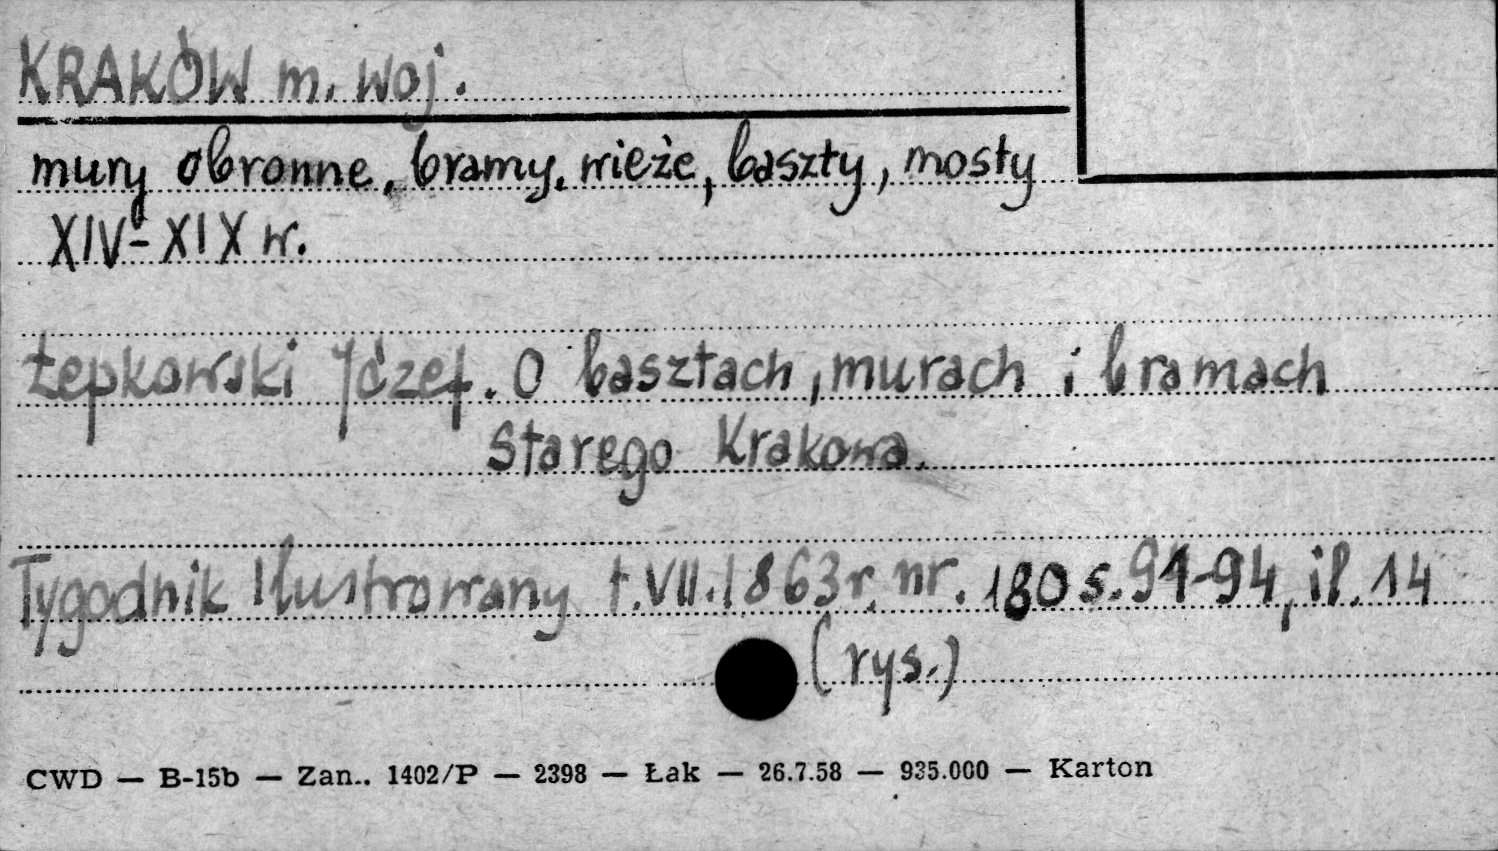 KRAKÓW m. woj.
mury obronne, bramy, wieże, baszty, mosty
XIV-XIX w.
Łepkowski Józef. O basztach, murach i bramach
Starego Krakowa.
Tygodnik Ilustrowany t.VII.1863r. nr. 180 s.91-94, il. 14
(rys.)
CWD — B-15b — Zan.. 1402/P — 2398 — Łak — 26.7.58 — 935.000 — Karton